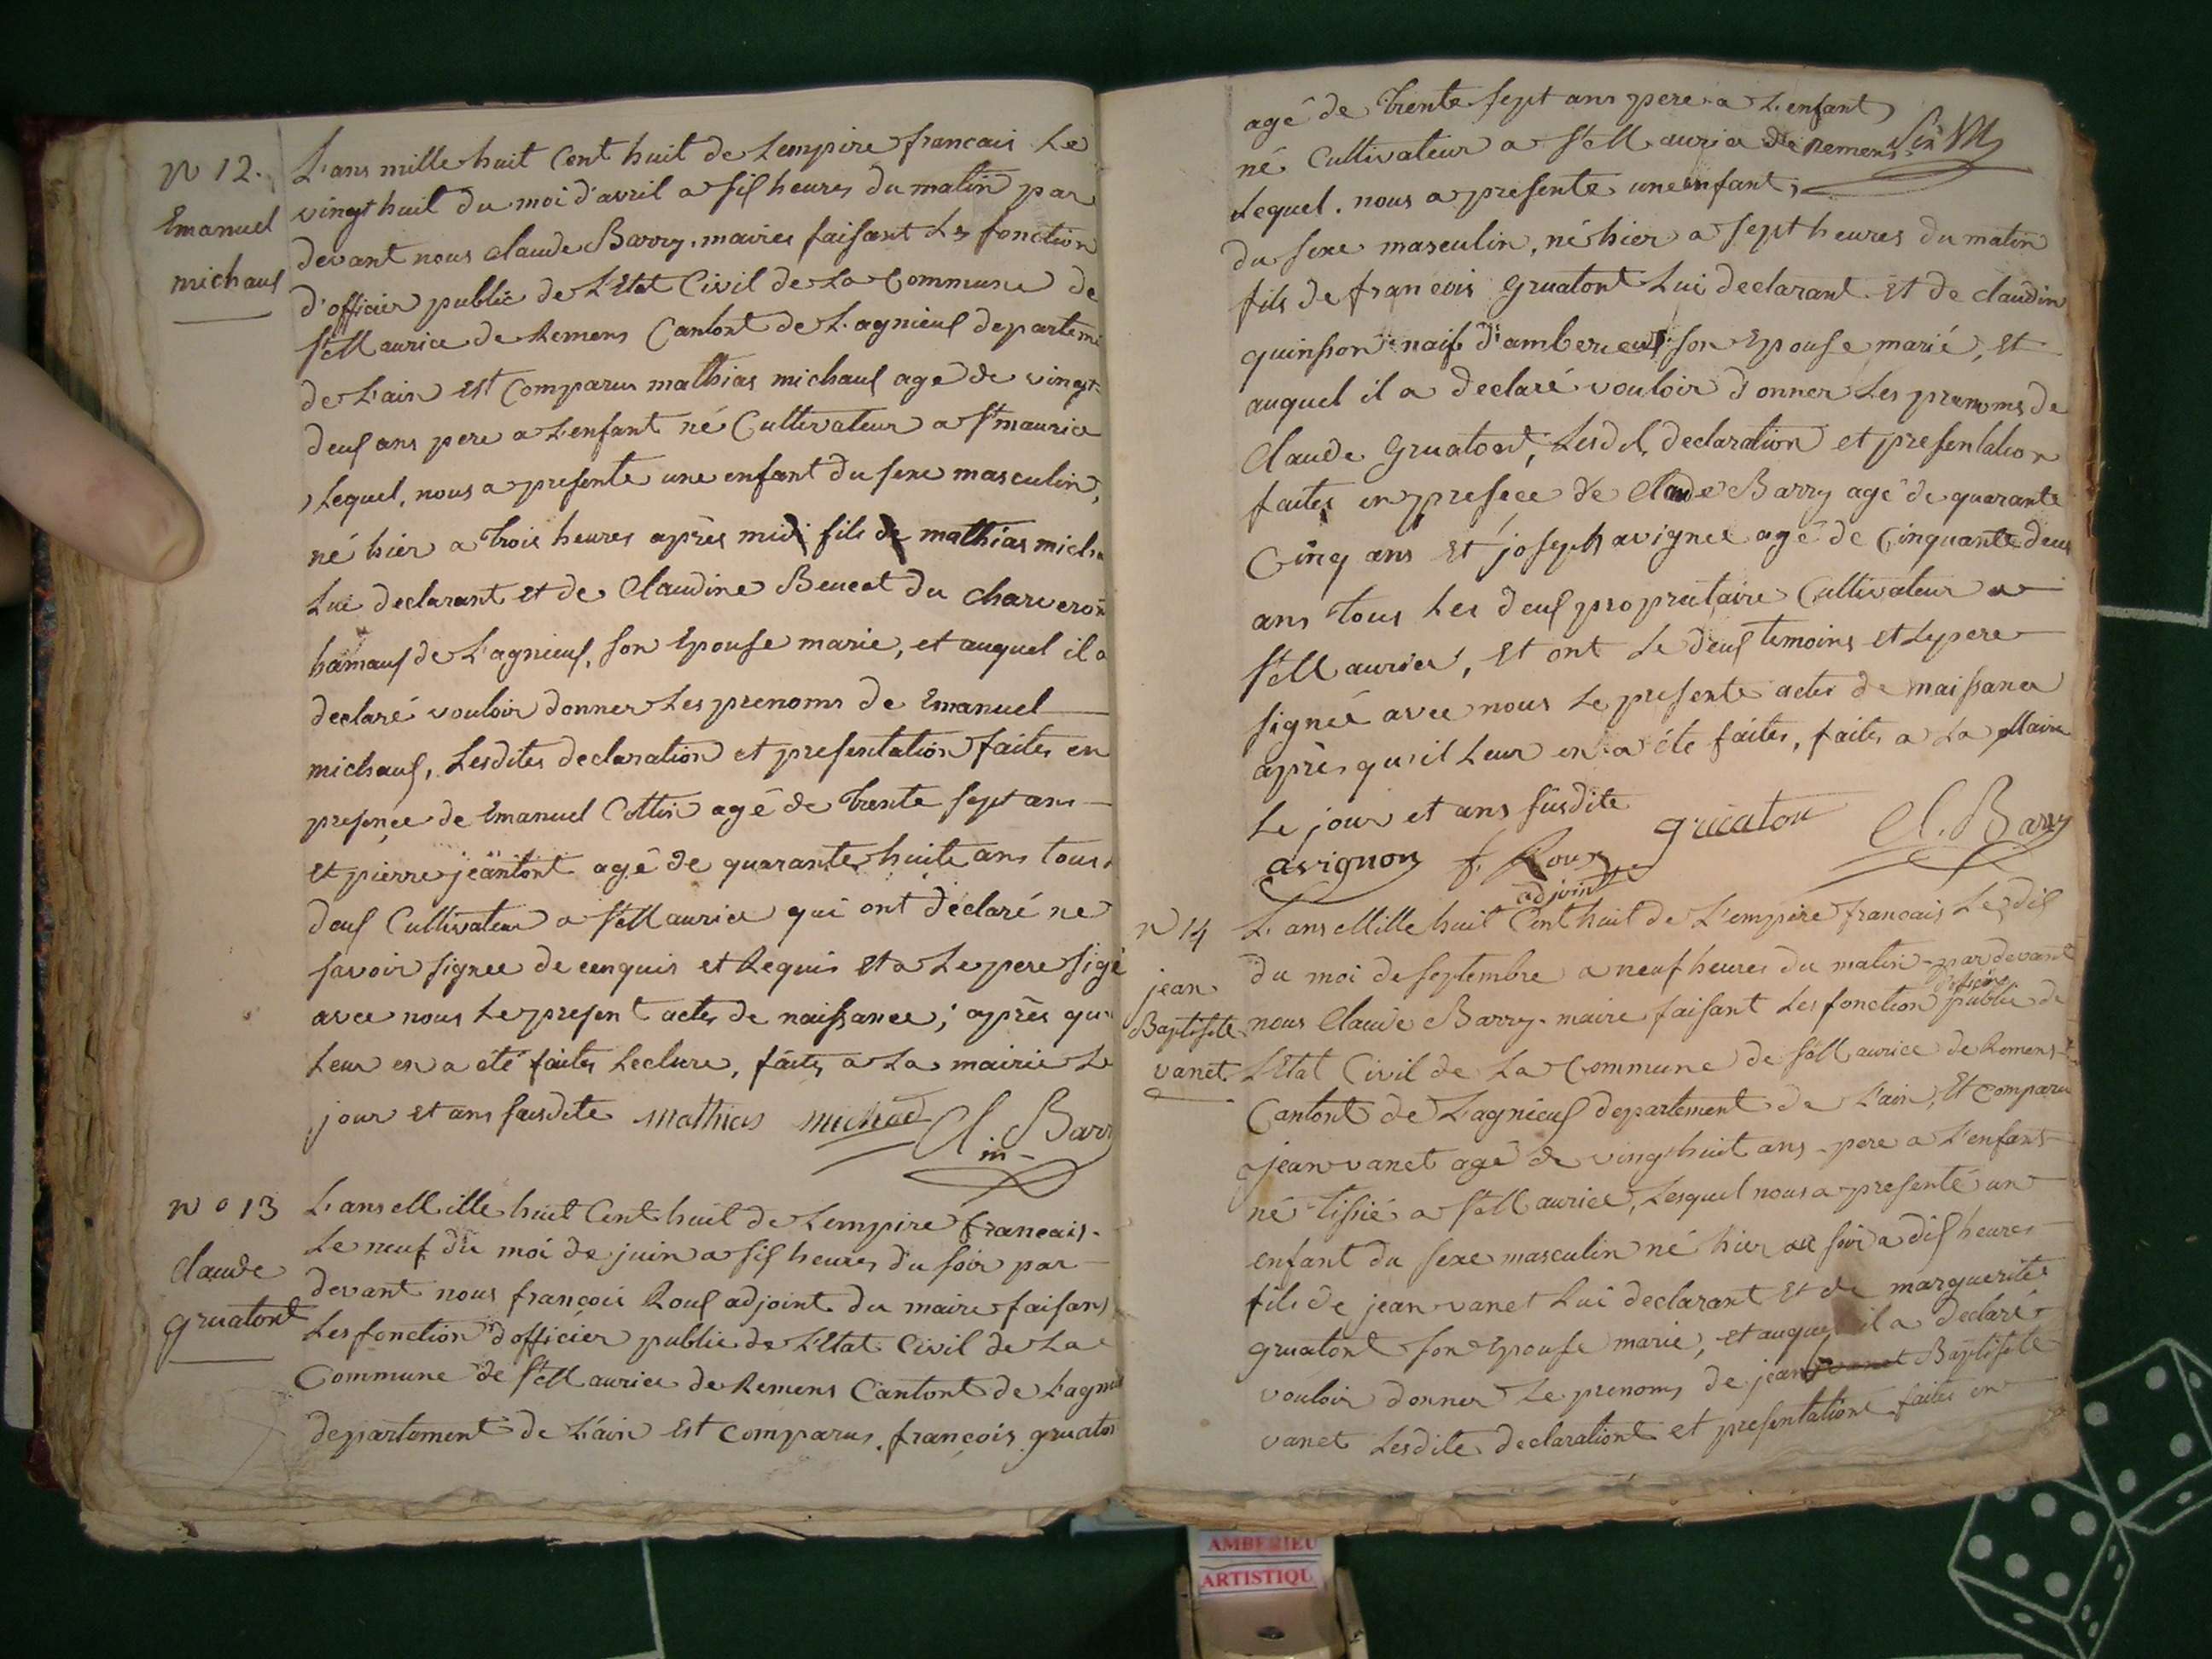 N 12.
Emanuel
michauf
L'ans mille huit Cent huit de Lempire francais Le
vingt huit du moi d'avril a sis heures du matin par
devant nous claude Barry, maires faisant Les fonction
d'officier public de L'Etat Civil de La Commune de
St Maurice de Remens Cantont de L'agnieuf departeme
de L'ain Est Comparus mathias michauf age de vingt
deuf ans pere a L'enfant né Cultivateur a St maurice
Lequel, nous a presente une enfant du sexe masculin,
né hier a trois heures après midi fils de mathias micha
Lui declarant et de Claudine Beucat du Charveron
hamauf de L'agnieuf, son Epouse marie, et auquel il a
declaré vouloir donner Les prenoms de Emanuel
michauf, Lesdites declaration et presentation faites en
presence de Emanuel Cottin agé de trente sept ans
Et pierre jeantont agé de quarante huite ans tous
deuf Cultivateur a St Maurice qui ont déclaré ne
savoir signee de cenquis et Requis Et a Le pere sigé
avec nous Le present actes de naissance; après qu
Leur en a été faites Lecture, faites a La mairie Le
jour Et ans susdite mathias michod Cl. Barr
m
N o 13
Claude
gruatont
L'ans Mille huit Cent huit de Lempire francais.
Le neuf du moi de juin a sis heures du soir par
devant nous françois Rouf adjoint du maire faisant
Les fonction d'officier public de L'Etat Civil de La
Commune de St Maurice de Remens Cantont de L'agni
departement de L'ain Est Comparus, françois gruaton
agé de trente sept ans pere a L'enfant
né Cultivateur a St Maurice de Remens
Lequel. nous a presente une enfant,
du sexe masculin, né hier a sept heures du matin
fils de francois gruatont Lui declarant Et de claudin
quinsson naif d'amberieuf son Epouse marié, Et
auquel il a declaré vouloir donner Les prenoms de
Claude gruatont, Lesd. declaration et presentation
faites en presece de Claude Barry agé de quarante
Cinq ans Et joseph avignee agé de Cinquante deus
ans tous Les deuf proprietaire Cultivateur a
St Maurice, Et ont Le deuf temoins Et Le pere
signée avec nous Le presente actes de naissance
après qu'il Leur en a été faites, faites a La Maire
Le jour et ans susdite
gruaton Cl. Barry
avignon f. Roux
adjoint
N 14
jean
Baptiste
vanet
L'ans Mille huit Cent huit de L'empire francais Le dis
du moi de septembre a neuf heures du matin par devant
officier
nous Claude Barry. maire faisant Les fonction public de
L'Etat Civil de La Commune de St Maurice de Remens
Cantont de L'agnieuf departement de L'ain, Et Comparu
jean vanet agé de ving huit ans pere a L'enfant
né tisié a St Maurice, Lesquel nous a presenté un
enfant du sexe masculin né hier au soir a dis heures
fils de jean vanet Lui declarant Et de marguerite
gruatont son Epouse marié, Et auquel il a declaré
vouloir donner Le prenoms de jean vanet Baptiste
vanet Lesdite declarationt et presentationt faites en
AMBERIEU
ARTISTIQU